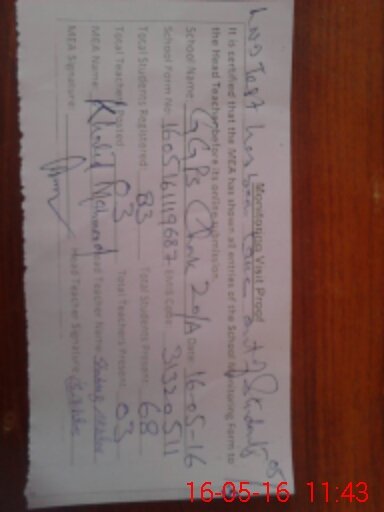 LND Test has been taken out of students 05
Monitoring Visit Proof
It is certified that the MEA has shown all entries of the School Monitoring Form to
the Head Teacher before its online submission.
School Name: GGPS Chak 20/A Date: 16-05-16
School Form No: 160516119687 EMIS Code: 31320511
Total Students Registered: 83 Total Students Present: 68
Total Teachers Posted 03 Total Teachers Present: 03
MEA Name: Khalid Mehmood Head Teacher Name:
MEA Signature: Head Teacher Signature:
16-05-16 11:43